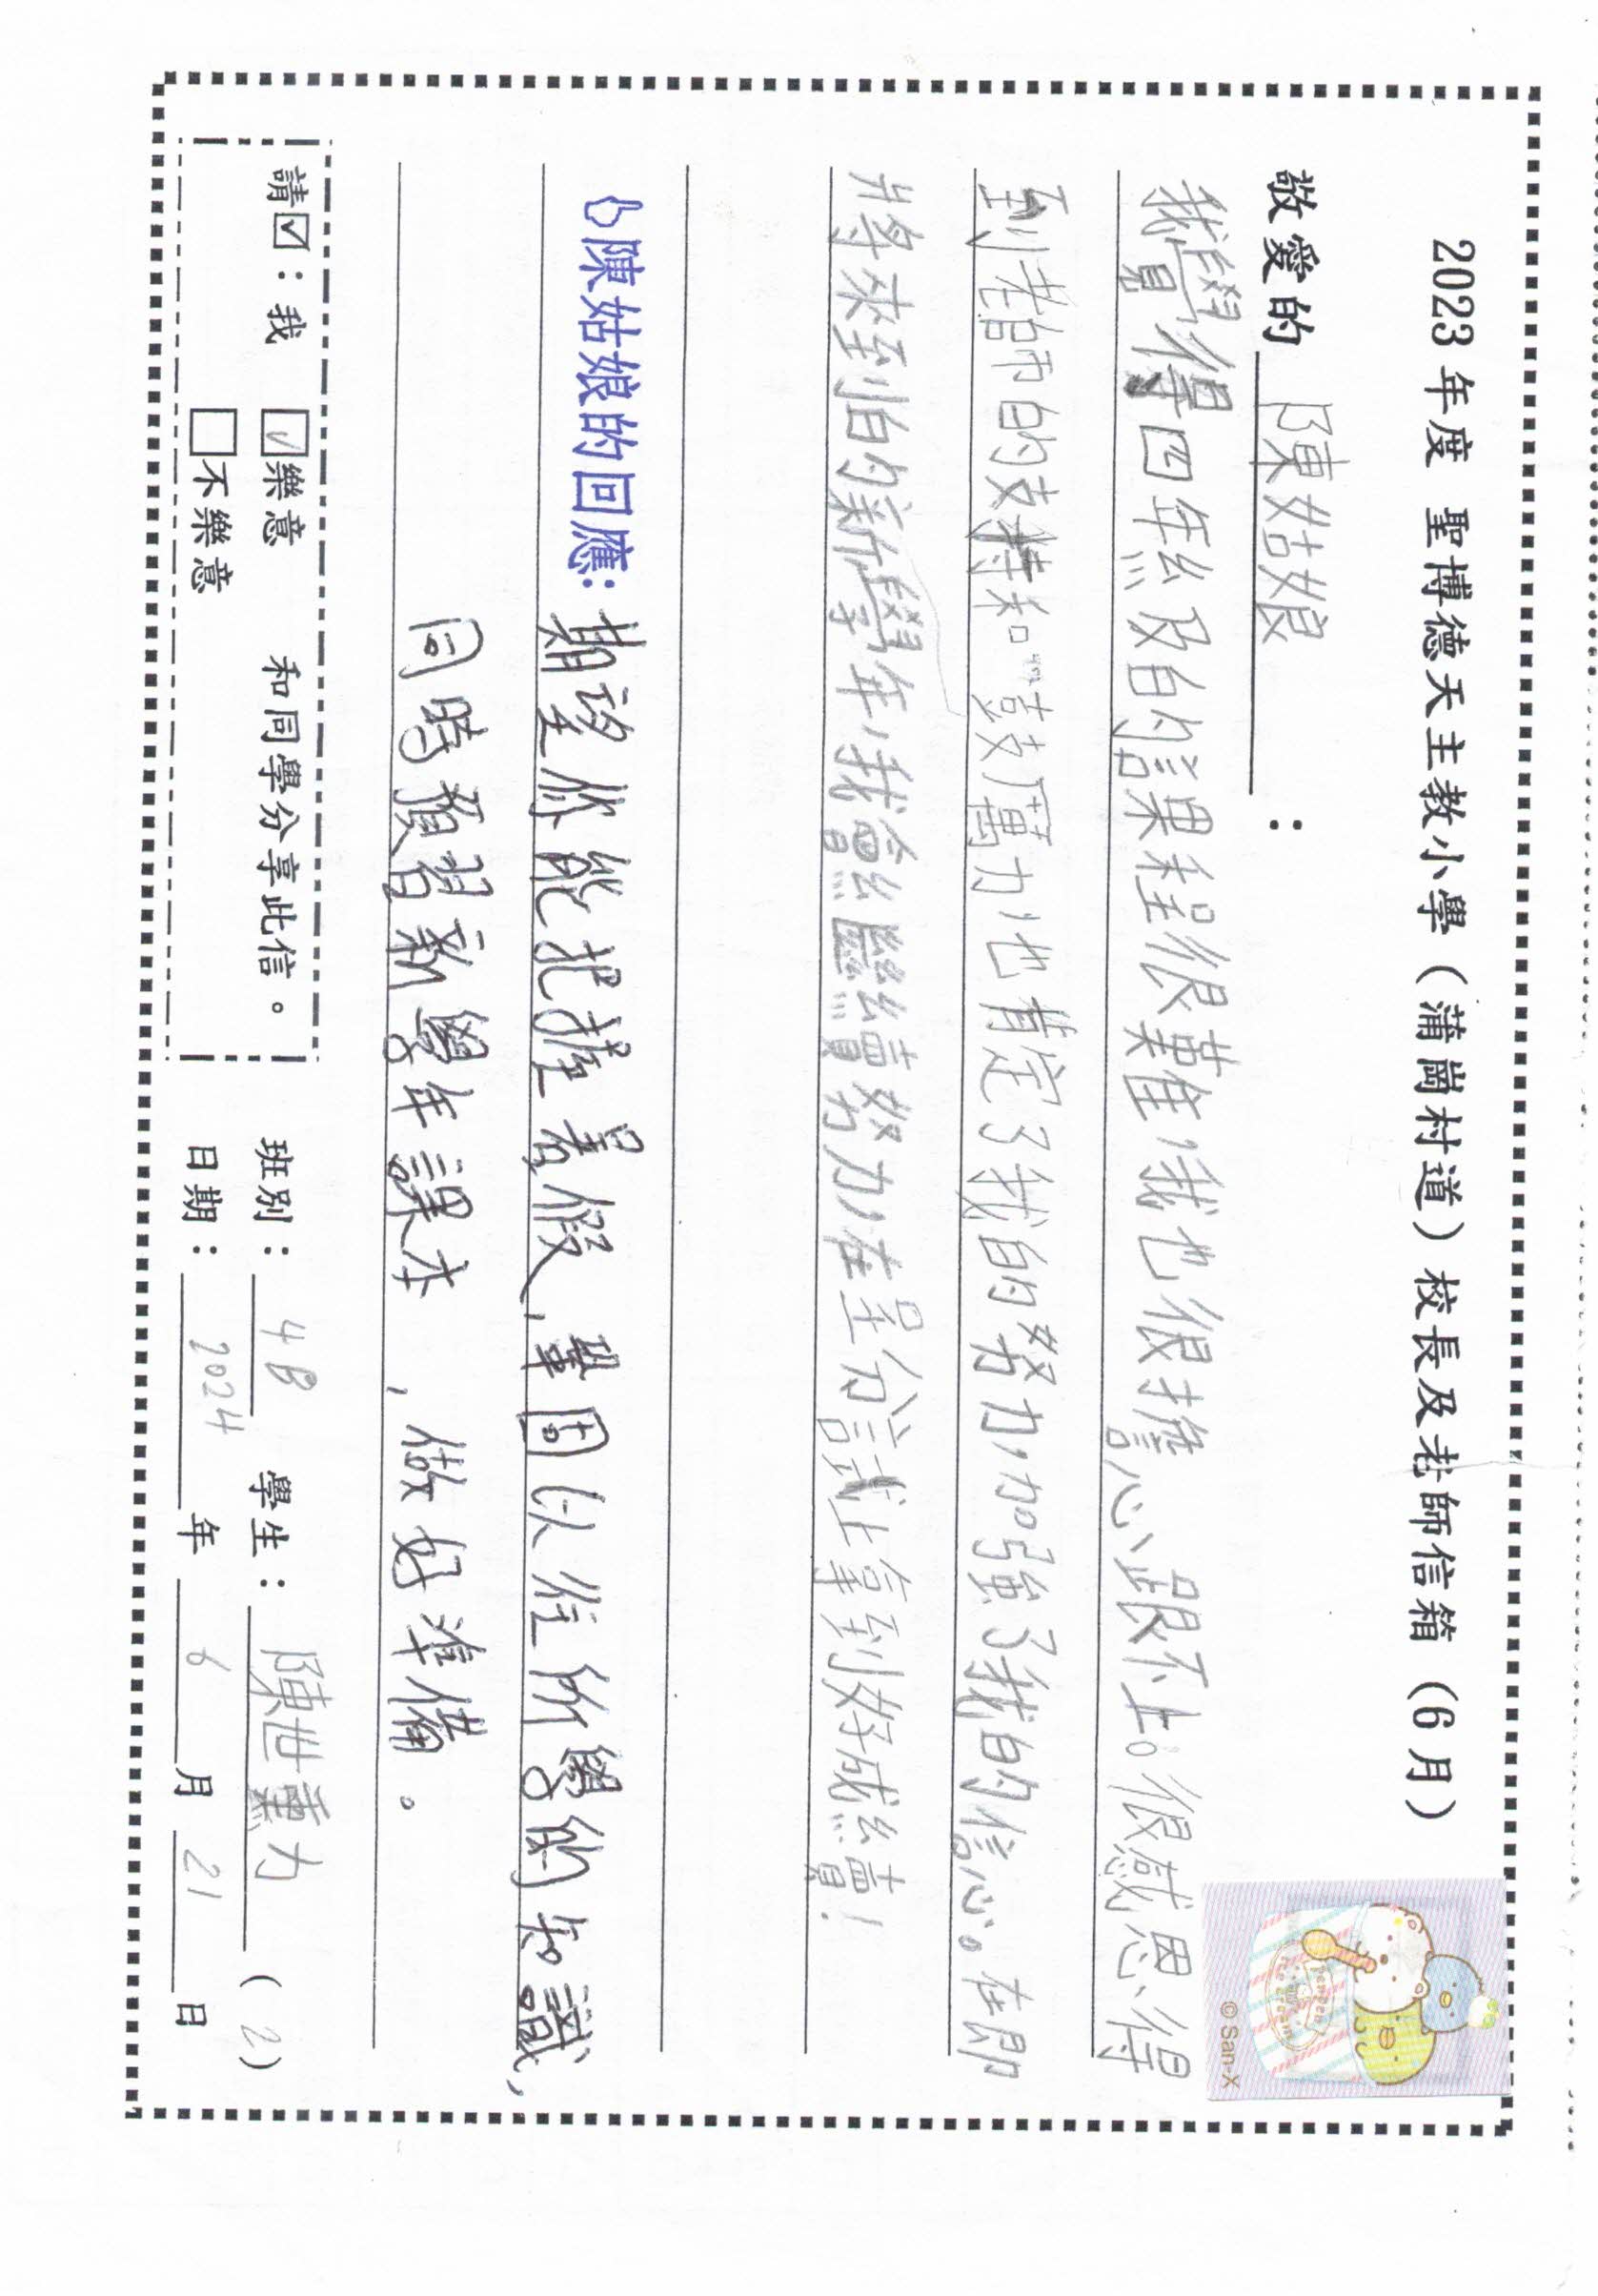 2023年度 聖博德天主教小學（蒲崗村道）校長及老師信箱（6月）
敬愛的 陳姑娘 ：
我覺得四年級的課程很難，我也很擔心跟不上。很感恩，得
到老師的支持和鼓勵，也肯定了我的努力，加強了我的信心。在即
將來到的新學年，我會繼續努力，在呈分試上拿到好成績！
陳姑娘的回應：期望你能把握暑假，鞏固以往所學的知識，
同時預習新學年課本，做好準備。
請☑：我 ☑樂意 和同學分享此信。
□不樂意
班別：4B 學生：陳世勳（2）
日期：2024年6月21日
© San-X